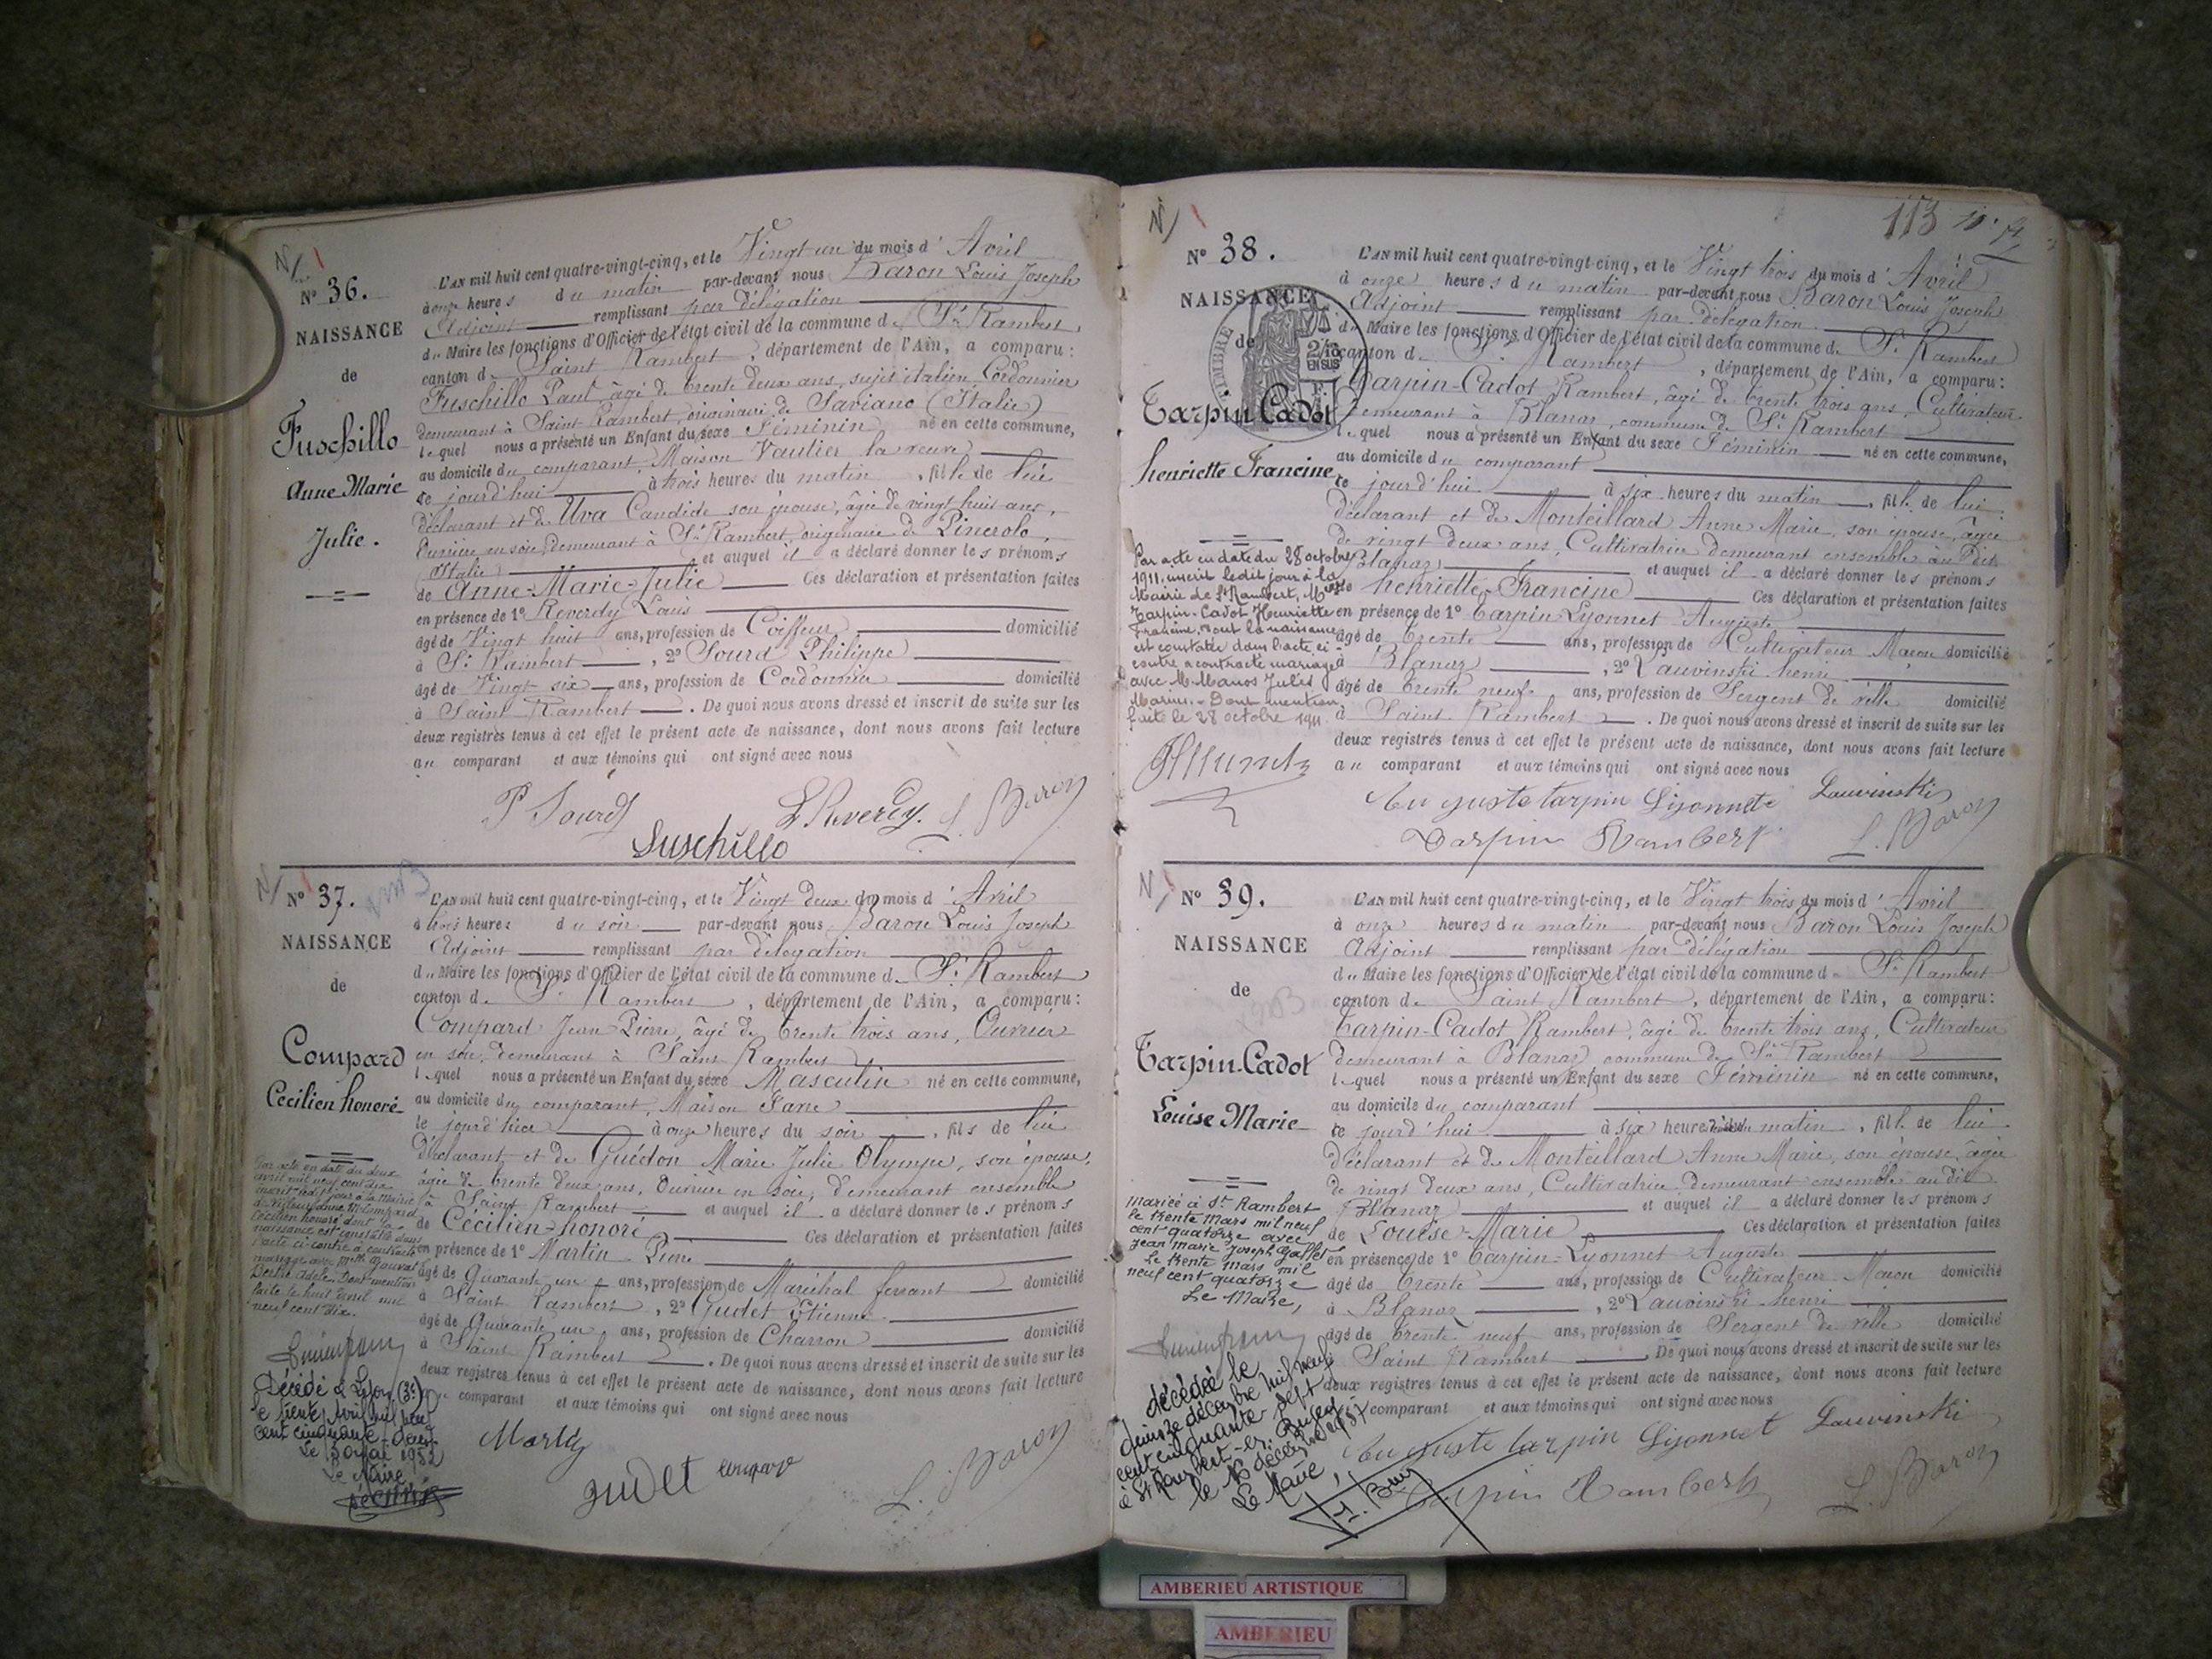 N/ 1
N° 36.
NAISSANCE
de
Fuschillo
Anne Marie
Julie.
L'AN mil huit cent quatre-vingt-cinq, et le Vingt un du mois d'Avril
à onze heures du matin par-devant nous Baron Louis Joseph
Adjoint remplissant par délégation
du Maire les fonctions d'Officier de l'état civil de la commune de St Rambert,
canton de Saint Rambert, département de l'Ain, a comparu:
Fuschillo Paul, âgé de trente deux ans, sujet italien, Cordonnier
demeurant à Saint Rambert, originaire de Saviano (Italie)
lequel nous a présenté un Enfant du sexe Féminin né en cette commune,
au domicile du comparant, Maison Vaulier la veuve
ce jourd'hui à trois heures du matin, fille de lui
déclarant et de Uva Candide son épouse, âgée de vingt huit ans,
Ouvrière en soie, demeurant à St Rambert, originaire de Pincrolo,
(Italie) et auquel il a déclaré donner les prénoms
de Anne-Marie-Julie Ces déclaration et présentation faites
en présence de 1° Reverdy Louis
âgé de Vingt huit ans, profession de Coiffeur, domicilié
à St Rambert, 2° Sourd Philippe
âgé de Vingt six ans, profession de Cordonnier domicilié
à Saint Rambert. De quoi nous avons dressé et inscrit de suite sur les
deux registres tenus à cet effet le présent acte de naissance, dont nous avons fait lecture
au comparant et aux témoins qui ont signé avec nous
P Sourd L Reverdy. L. Baron
Fuschillo
N/ 1
N° 37.
NAISSANCE
de
Compard
Cécilien honoré
L'AN mil huit cent quatre-vingt-cinq, et le Vingt deux du mois d'Avril
à trois heures du soir par-devant nous Baron Louis Joseph
Adjoint remplissant par délégation
du Maire les fonctions d'Officier de l'état civil de la commune de St Rambert
canton de St Rambert, département de l'Ain, a comparu:
Compard Jean Pierre, âgé de trente trois ans, Ouvrier
en soie, demeurant à Saint Rambert
lequel nous a présenté un Enfant du sexe Masculin né en cette commune,
au domicile du comparant, Maison
le jourd'hier à onze heures du soir, fils de lui
déclarant et de Guédon Marie Julie Olympe, son épouse,
âgée de trente deux ans, Ouvrière en soie, demeurant ensemble
à Saint Rambert et auquel il a déclaré donner les prénoms
de Cécilien-honoré Ces déclaration et présentation faites
en présence de 1° Martin Pierre
âgé de Quarante un ans, profession de Maréchal ferrant domicilié
à Saint Rambert, 2° Gudet Etienne
âgé de Quarante un ans, profession de Charron domicilié
à Saint Rambert. De quoi nous avons dressé et inscrit de suite sur les
deux registres tenus à cet effet le présent acte de naissance, dont nous avons fait lecture
au comparant et aux témoins qui ont signé avec nous
Par acte en date du deux
avril mil neuf cent dix
inscrit ledit jour à la Mairie
de Villeurbanne M. Compard
Cécilien honoré dont la
naissance est constatée dans
l'acte ci-contre a contracté
mariage avec Melle
Berthe Adèle. Dont mention
faite le huit avril mil
neuf cent dix.
Décédé à Lyon (3e)
le trente Avril mil neuf
cent cinquante-deux
Le 3 mai 1952
Le Maire
Martin
Gudet Compard L. Baron
113
N/ 1
N° 38.
NAISSANCE
de
Tarpin Cadot
henriette Francine
TIMBRE
2/10
EN SUS
L'AN mil huit cent quatre-vingt-cinq, et le Vingt trois du mois d'Avril
à onze heures du matin par-devant nous Baron Louis Joseph
Adjoint remplissant par délégation
du Maire les fonctions d'Officier de l'état civil de la commune de St Rambert
canton de St Rambert, département de l'Ain, a comparu:
Tarpin-Cadot Rambert, âgé de trente trois ans, Cultivateur
demeurant à Blanaz, commune de St Rambert
lequel nous a présenté un Enfant du sexe Féminin né en cette commune,
au domicile du comparant
ce jourd'hui à six heures du matin, fille de lui
déclarant et de Monteillard Anne Marie, son épouse, âgée
de vingt deux ans, Cultivatrice demeurant ensemble au dit
Blanaz et auquel il a déclaré donner les prénoms
de henriette-Francine Ces déclaration et présentation faites
en présence de 1° Tarpin Lyonnet Auguste
âgé de trente ans, profession de Cultivateur Maçon domicilié
à Blanaz, 2° Lauvinski henri
âgé de trente neuf ans, profession de Sergent de ville domicilié
à Saint Rambert. De quoi nous avons dressé et inscrit de suite sur les
deux registres tenus à cet effet le présent acte de naissance, dont nous avons fait lecture
au comparant et aux témoins qui ont signé avec nous
Par acte en date du 28 octobre
1911, inscrit ledit jour à la
Mairie de St Rambert, Melle
Tarpin-Cadot Henriette
Francine, dont la naissance
est constatée dans l'acte ci-
contre a contracté mariage
avec M. Manos Jules
Marius. - Dont mention
faite le 28 octobre 1911.
Auguste tarpin Lyonnete Lauvinski
Tarpin Rambert L. Baron
N/ 1
N° 39.
NAISSANCE
de
Tarpin-Cadot
Louise Marie
L'AN mil huit cent quatre-vingt-cinq, et le Vingt trois du mois d'Avril
à onze heures du matin par-devant nous Baron Louis Joseph
Adjoint remplissant par délégation
du Maire les fonctions d'Officier de l'état civil de la commune de St Rambert
canton de Saint Rambert, département de l'Ain, a comparu:
Tarpin-Cadot Rambert, âgé de trente trois ans, Cultivateur
demeurant à Blanaz commune de St Rambert
lequel nous a présenté un Enfant du sexe Féminin né en cette commune,
au domicile du comparant
ce jourd'hui à six heures du matin, fille de lui
déclarant et de Monteillard Anne Marie, son épouse, âgée
de vingt deux ans, Cultivatrice demeurant ensemble au dit
Blanaz et auquel il a déclaré donner les prénoms
de Louise-Marie Ces déclaration et présentation faites
en présence de 1° Tarpin-Lyonnet Auguste
âgé de trente ans, profession de Cultivateur Maçon domicilié
à Blanaz, 2° Lauvinski henri
âgé de trente neuf ans, profession de Sergent de ville domicilié
à Saint Rambert. De quoi nous avons dressé et inscrit de suite sur les
deux registres tenus à cet effet le présent acte de naissance, dont nous avons fait lecture
au comparant et aux témoins qui ont signé avec nous
Mariée à St Rambert
le trente Mars mil neuf
cent quatorze avec
Jean Marie Joseph Gallet
Le trente Mars mil
neuf cent quatorze
Le Maire,
décédée le
quinze décembre mil neuf
cent cinquante sept
à St Rambert-en-Bugey
le 16 décembre 1957
Le Maire,
Auguste tarpin Lyonnet Lauvinski
Tarpin Rambert L. Baron
AMBERIEU ARTISTIQUE
AMBERIEU